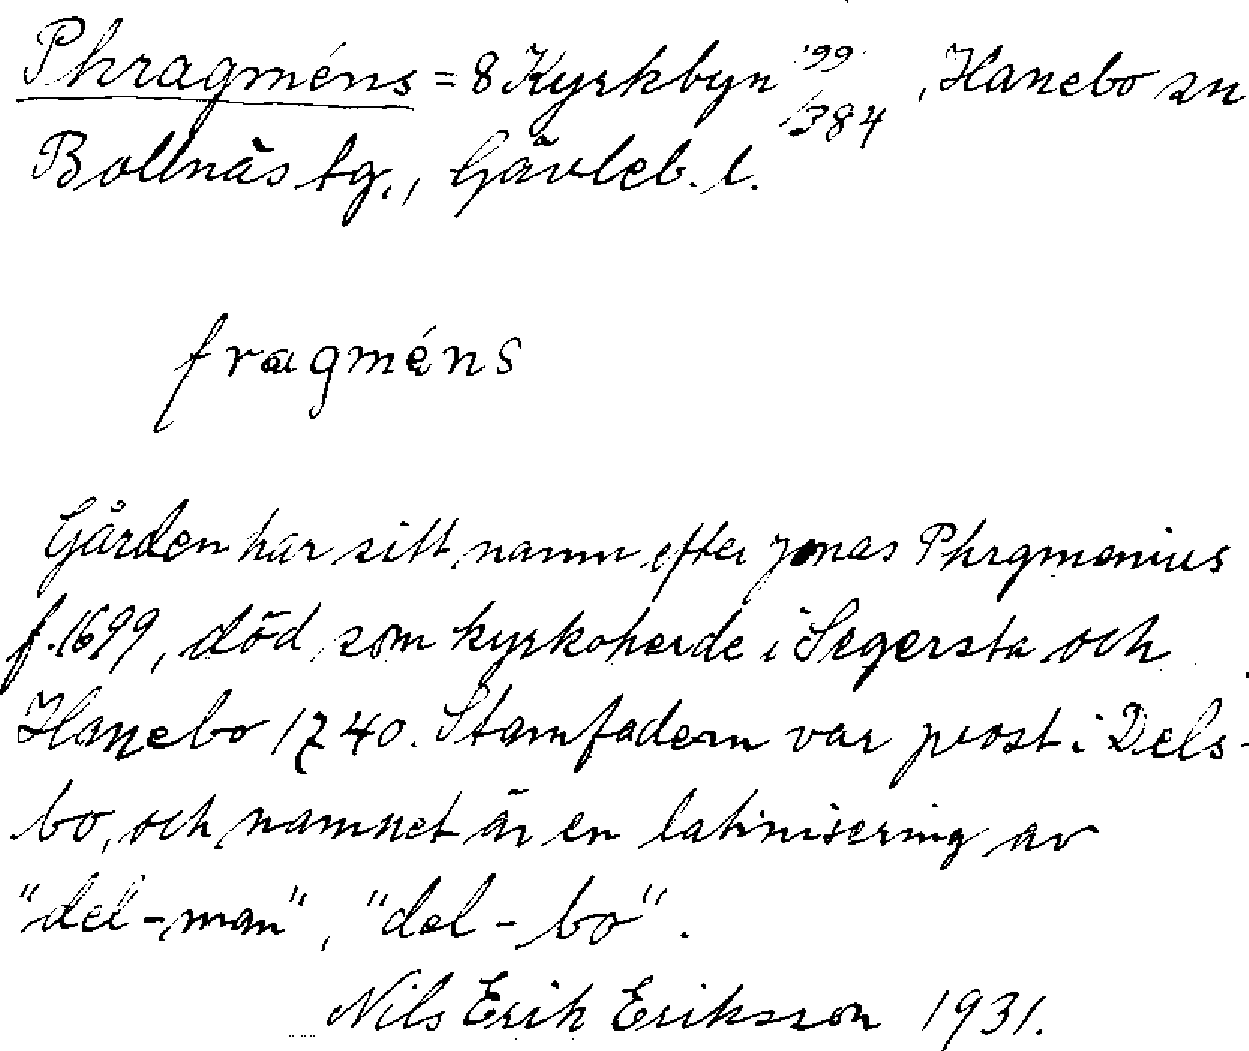 Phragméns = 8 Kyrkbyn '99/384, Hanebo sn
Bollnäs tg., Gävleb. l.
fragméns
Gården har sitt namn efter Jonas Phrgmenius
f. 1699, död som kyrkoherde i Segersta och
Hanebo 1740. Stamfadern var prost i Dels-
bo, och namnet är en latinisering av
"del-man", "del-bo".
Nils Erik Eriksson 1931.